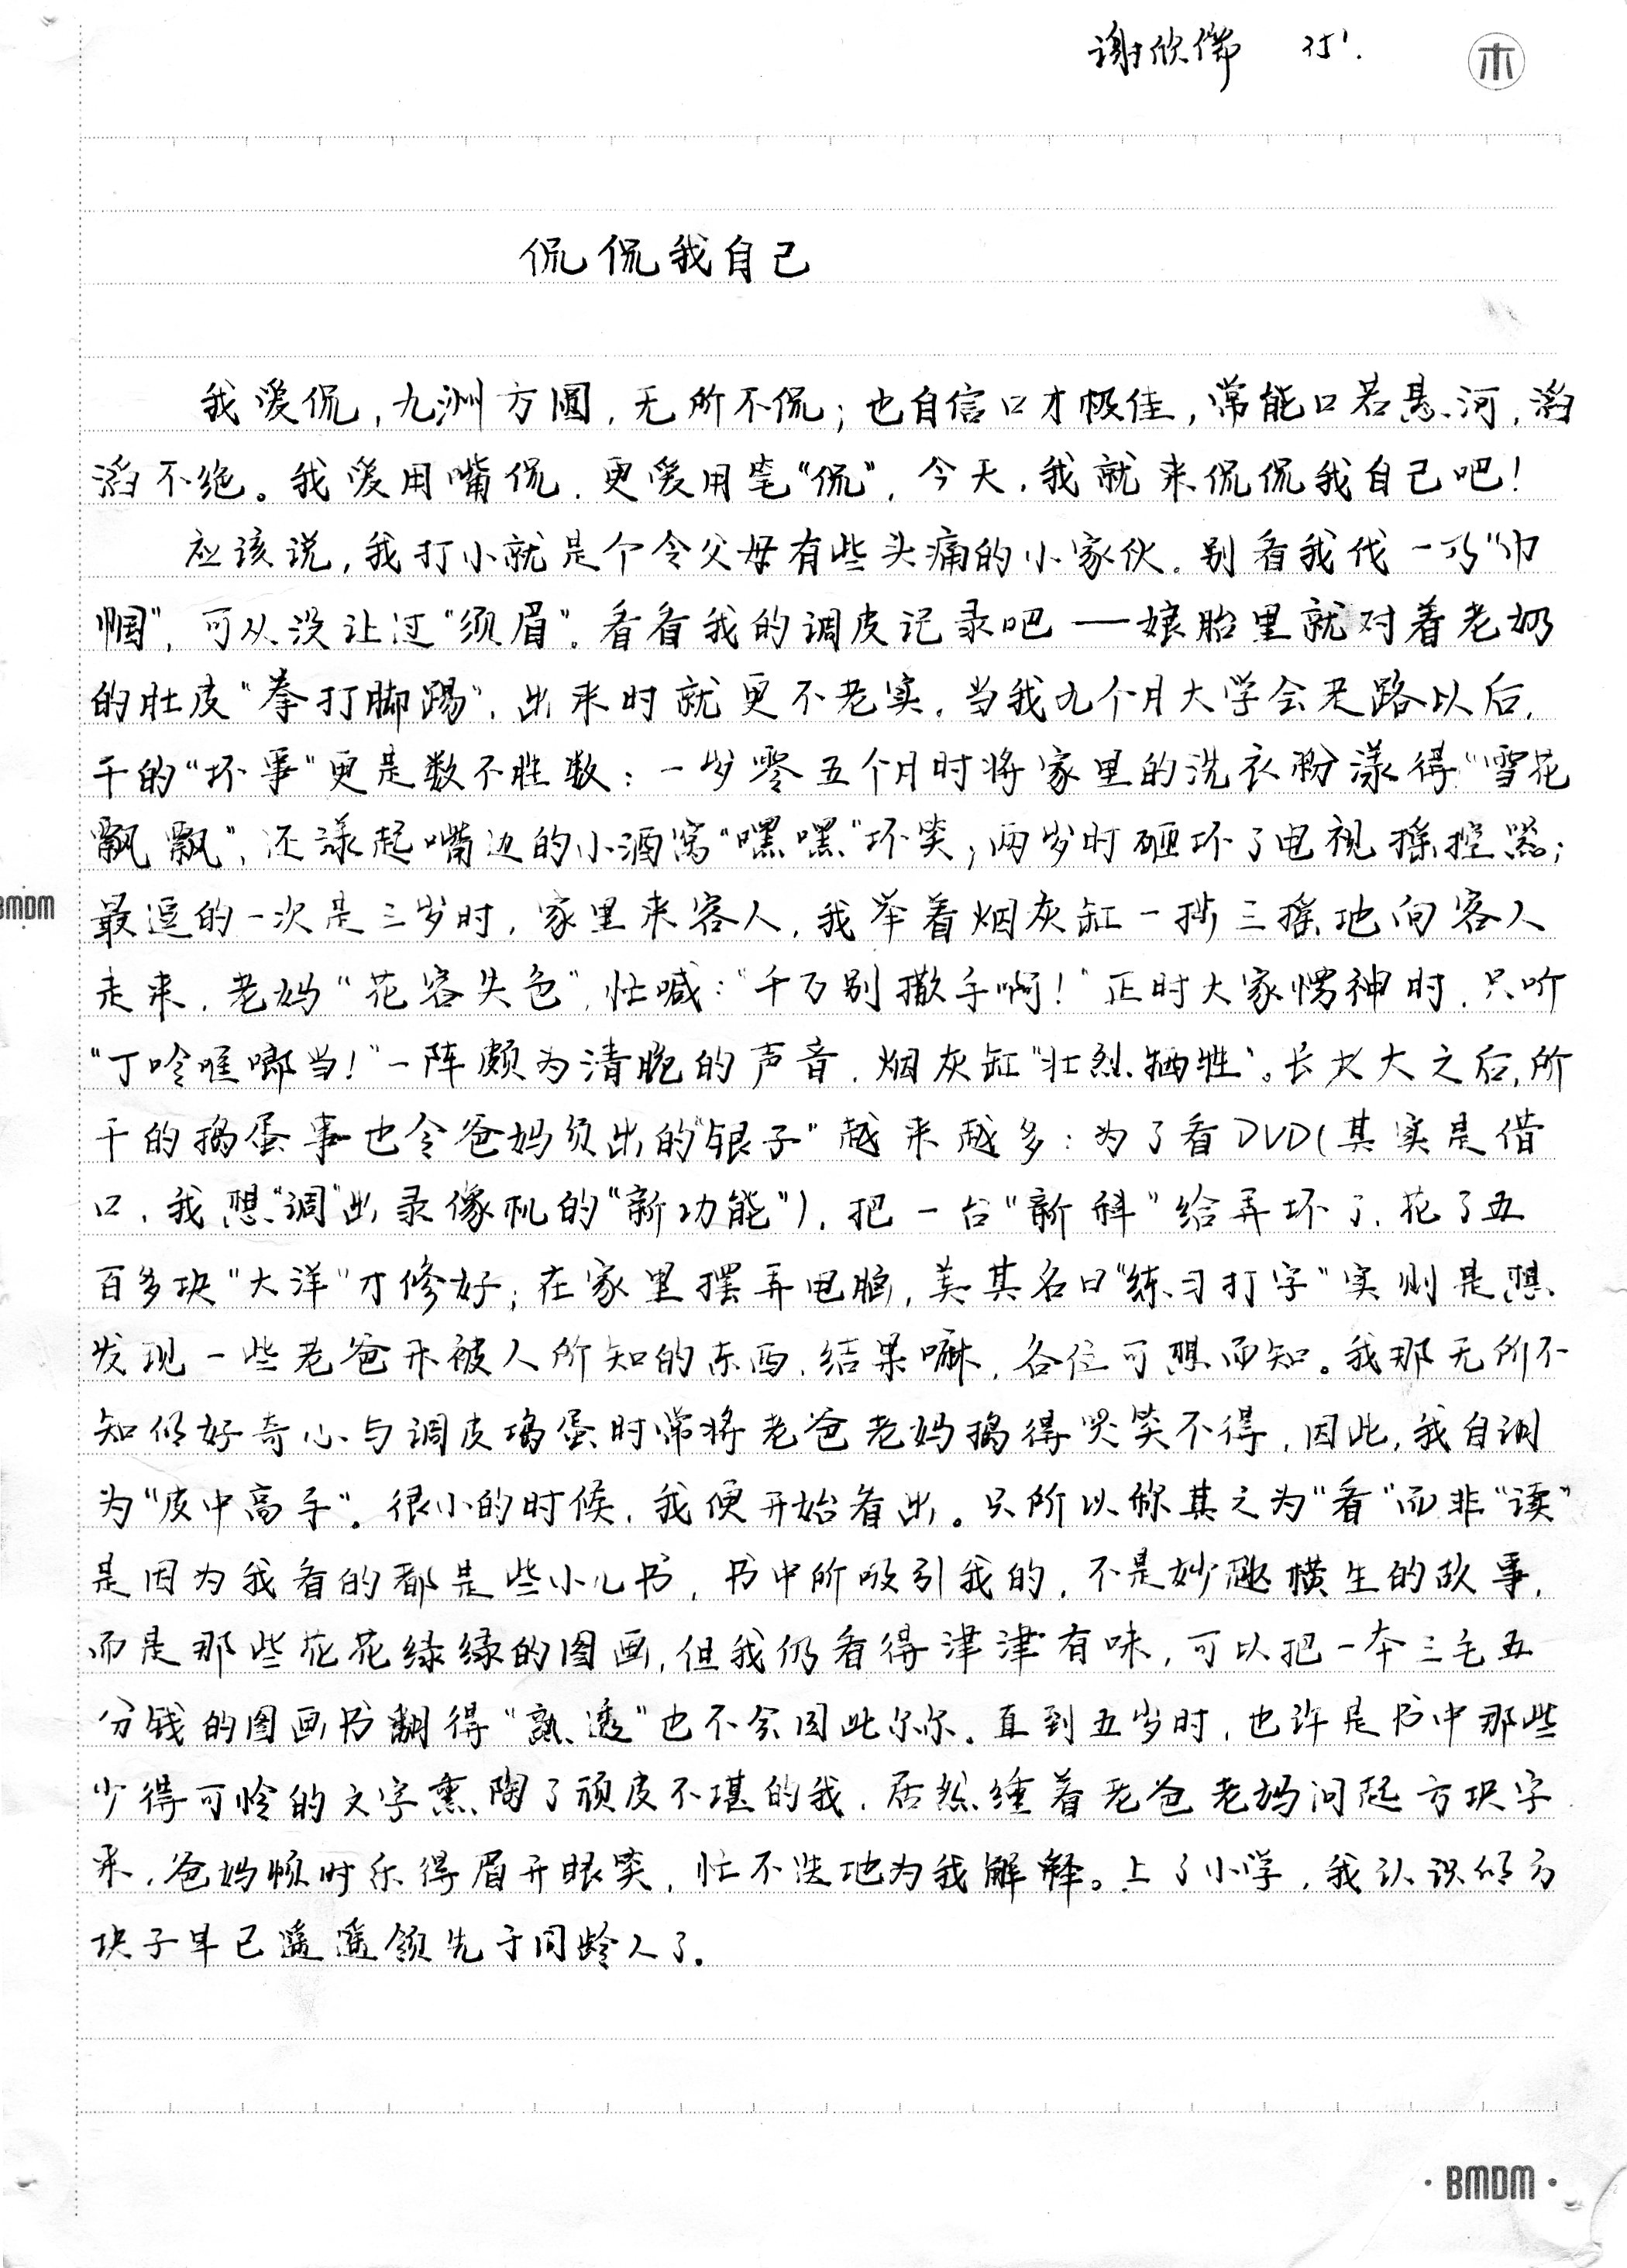 谢欣 25'.
木
侃侃我自己
我爱侃,九洲方圆,无所不侃;也自信口才极佳,常能口若悬河,滔
滔不绝。我爱用嘴侃,更爱用笔“侃”,今天,我就来侃侃我自己吧!
应该说,我打小就是个令父母有些头痛的小家伙。别看我代一巧“巾
帼”,可从没让过“须眉”。看看我的调皮记录吧——娘胎里就对着老奶
的肚皮“拳打脚踢”,出来时就更不老实。当我九个月大学会走路以后,
干的“坏事”更是数不胜数:一岁零五个月时将家里的洗衣粉漾得“雪花
飘飘”,还漾起嘴边的小酒窝“嘿嘿”坏笑;两岁时砸坏了电视摇控器;
最逗的一次是三岁时,家里来客人,我举着烟灰缸一摇三摇地向客人
走来,老妈“花容失色”,忙喊:“千万别撒手啊!”正时大家愣神时,只听
“丁呤哐啷当!”一阵颇为清脆的声音,烟灰缸“壮烈牺牲”。长大之后,所
干的捣蛋事也令爸妈负出的“银子”越来越多:为了看DVD(其实是借
口,我想“调”出录像机的“新功能”),把一台“新科”给弄坏了,花了五
百多块“大洋”才修好;在家里摆弄电脑,美其名曰“练习打字”实则是想
发现一些老爸不被人所知的东西,结果嘛,各位可想而知。我那无所不
知的好奇心与调皮捣蛋时常将老爸老妈搞得哭笑不得,因此,我自诩
为“皮中高手”。很小的时候,我便开始看出。只所以称其之为“看”而非“读”
是因为我看的都是些小儿书,书中所吸引我的,不是妙趣横生的故事,
而是那些花花绿绿的图画,但我仍看得津津有味,可以把一本三毛五
分钱的图画书翻得“熟透”也不会因此尔尔。直到五岁时,也许是书中那些
少得可怜的文字熏陶了顽皮不堪的我,居然缠着老爸老妈问起方块字
来,爸妈顿时乐得眉开眼笑,忙不迭地为我解释。上了小学,我认识的方
块子早已遥遥领先于同龄人了。
BMDM
BMDM